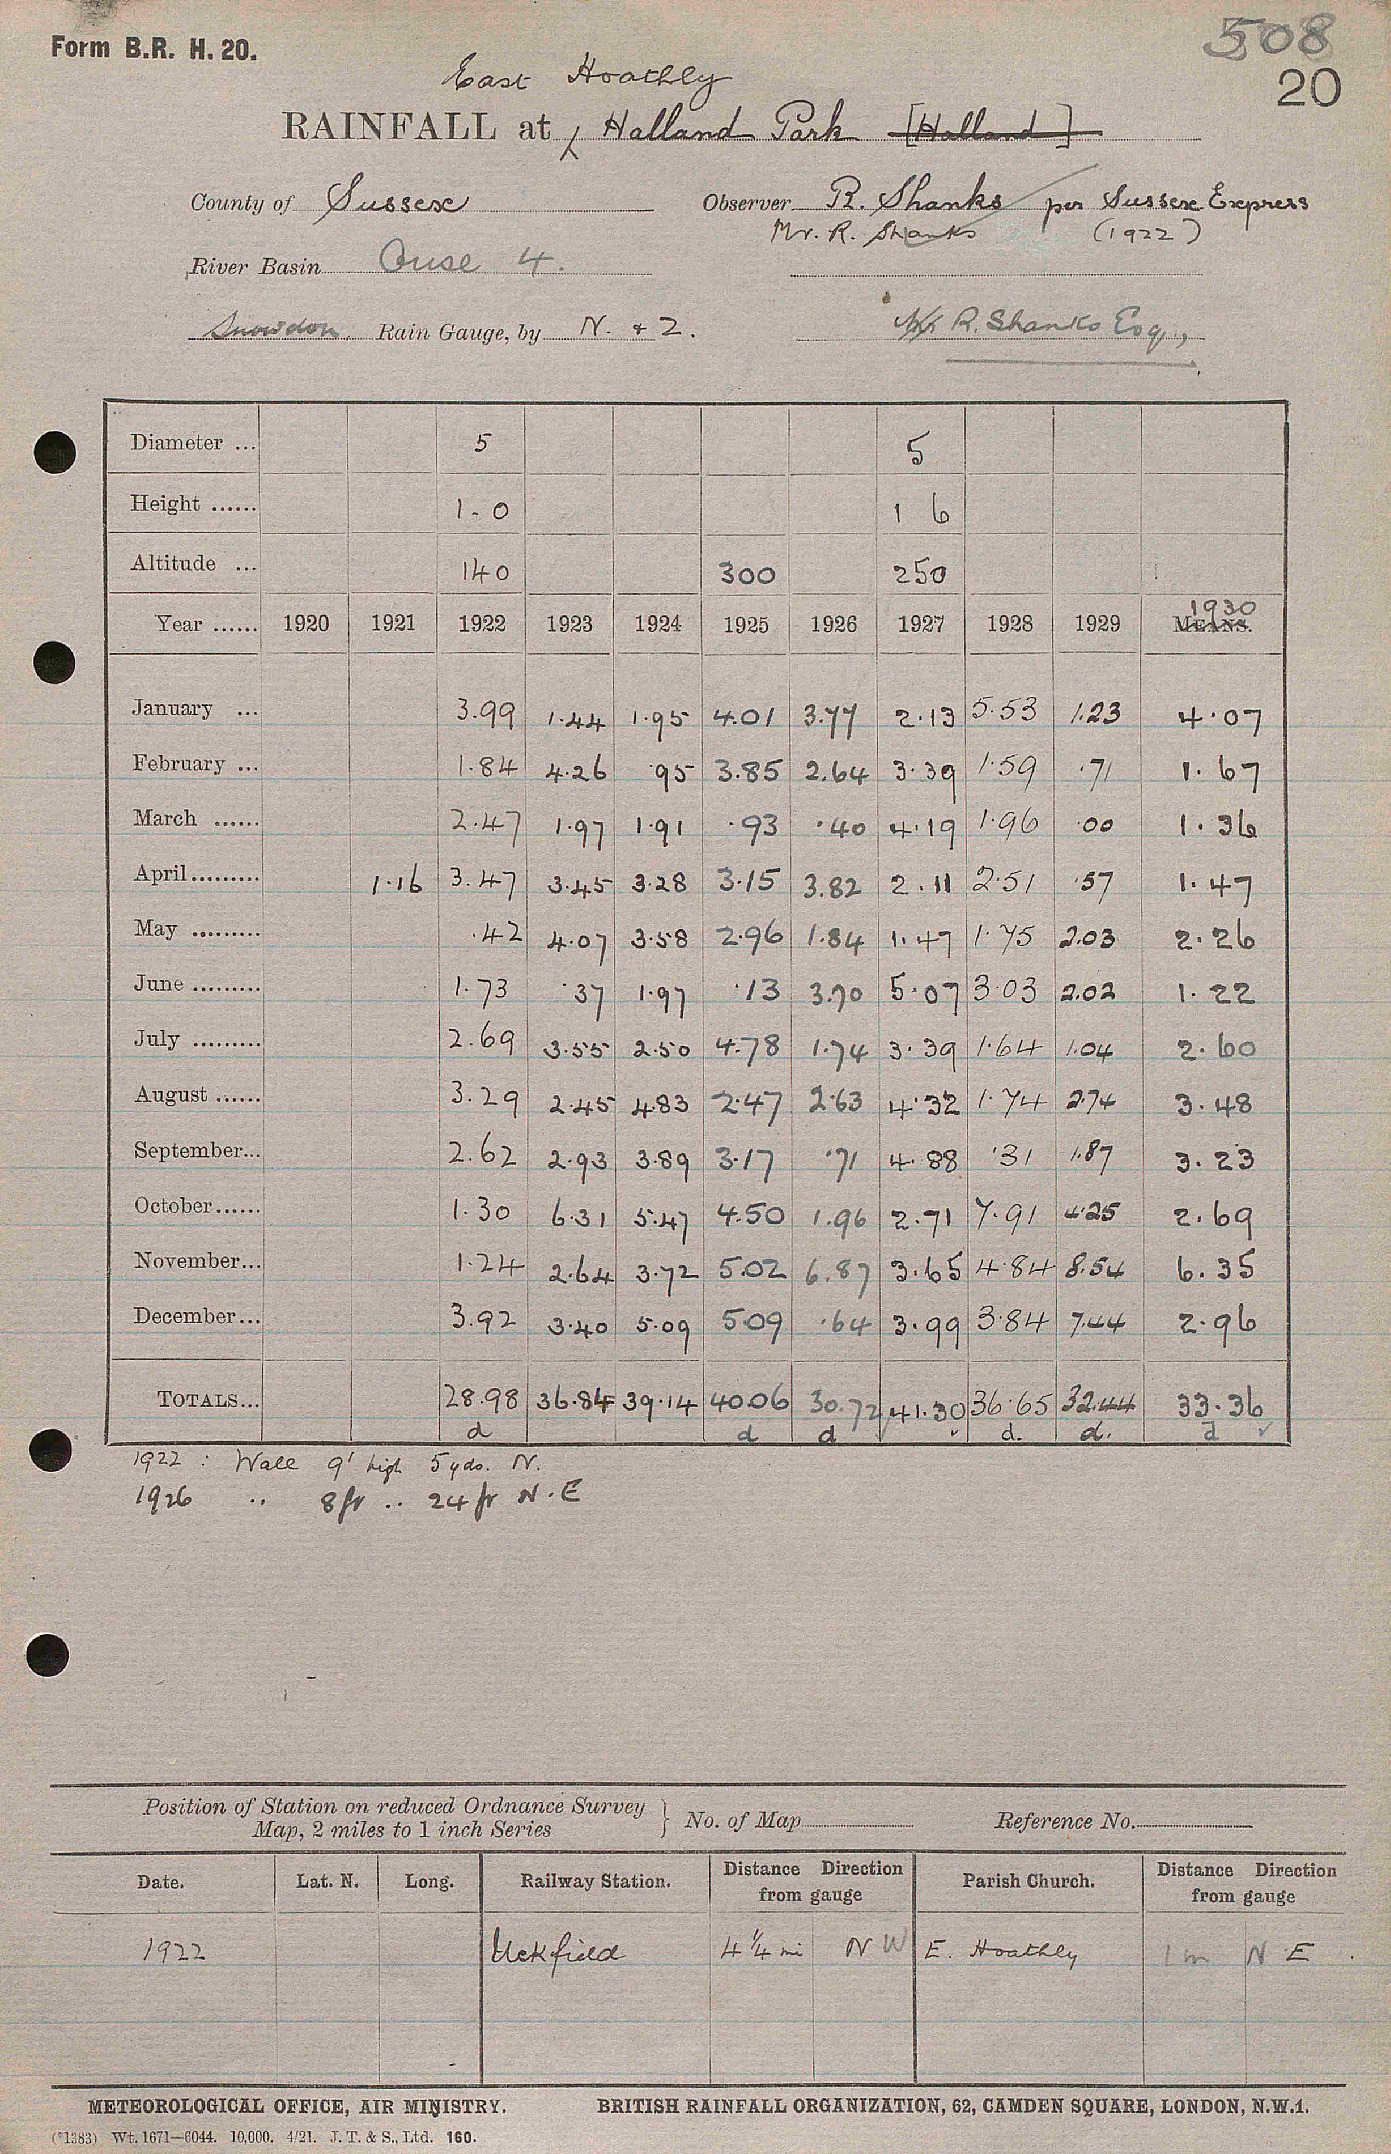 Form B.R. H. 20.
508
20
East Hoathly
RAINFALL at Halland Park [Halland]
County of Sussex Observer R. Shanks per Sussex Express
Mr. R. Shanks (1922)
River Basin Ouse 4.
Snowdon Rain Gauge, by N. & Z. R. Shanks Esq.,
Diameter ... 5 5
Height ...... 1-0 1 6
Altitude ... 140 300 250
1930
Year ...... 1920 1921 1922 1923 1924 1925 1926 1927 1928 1929 MEANS.
January ... 3.99 1.44 1.95 4.01 3.77 2.13 5.53 1.23 4.07
February ... 1.84 4.26 .95 3.85 2.64 3.39 1.59 .71 1.67
March ...... 2.47 1.97 1.91 .93 .40 4.19 1.96 .00 1.36
April......... 1.16 3.47 3.45 3.28 3.15 3.82 2.11 2.51 .57 1.47
May ......... .42 4.07 3.58 2.96 1.84 1.47 1.75 2.03 2.26
June ......... 1.73 .37 1.97 .13 3.70 5.07 3.03 2.02 1.22
July ......... 2.69 3.55 2.50 4.78 1.74 3.39 1.64 1.04 2.60
August ...... 3.29 2.45 4.83 2.47 2.63 4.32 1.74 2.74 3.48
September... 2.62 2.93 3.89 3.17 .71 4.88 .31 1.87 3.23
October...... 1.30 6.31 5.47 4.50 1.96 2.71 7.91 4.25 2.69
November... 1.24 2.64 3.72 5.02 6.87 3.65 4.84 8.54 6.35
December... 3.92 3.40 5.09 5.09 .64 3.99 3.84 7.44 2.96
TOTALS... 28.98 36.84 39.14 40.06 30.72 41.30 36.65 32.44 33.36
d d d d. d. d
1922 : Wall 9' high 5 yds. N.
1926 .. 8 ft .. 24 ft N.E
Position of Station on reduced Ordnance Survey
Map, 2 miles to 1 inch Series } No. of Map Reference No.
Date. Lat. N. Long. Railway Station. Distance Direction from gauge Parish Church. Distance Direction from gauge
1922 Uckfield 4 1/4 mi N W E. Hoathly 1 m N E
METEOROLOGICAL OFFICE, AIR MINISTRY. BRITISH RAINFALL ORGANIZATION, 62, CAMDEN SQUARE, LONDON, N.W.1.
(*1383) Wt. 1671—6044. 10,000. 4/21. J. T. & S., Ltd. 160.